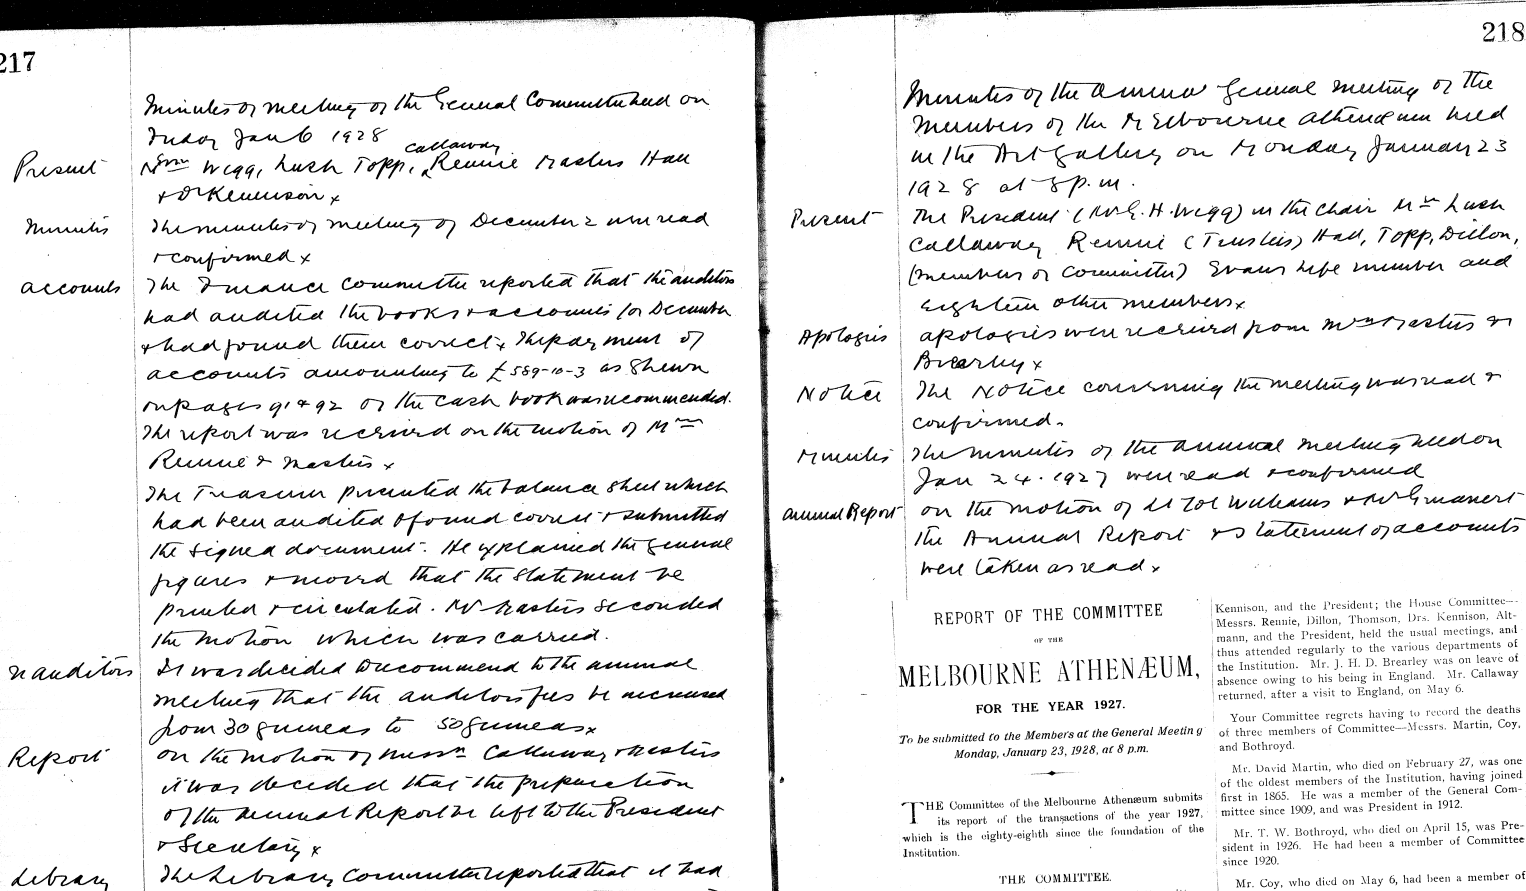 217
Minutes of meeting of the General Committee held on
Friday Jan 6 1928
Callaway
Present Messrs Wegg, Lush Topp, Rennie Masters Hall
+ Dr Kennison x
Minutes The minutes of meeting of December 2 were read
+ confirmed x
Accounts The Finance Committee reported that the auditors
had audited the books + accounts for December
+ had found them correct x The payment of
accounts amounting to £589-10-3 as shewn
on pages 91 + 92 of the cash book was recommended.
The report was received on the motion of Messrs
Rennie + Masters x
The Treasurer presented the balance sheet which
had been audited + found correct + submitted
the signed document. He explained the general
figures + moved that the statement be
printed + circulated. Mr Masters seconded
the motion which was carried.
auditors It was decided to recommend to the annual
meeting that the auditors fees be increased
from 30 guineas to 50 guineas x
Report On the motion of Messrs Callaway + Masters
it was decided that the preparation
of the Annual Report be left to the President
+ Secretary x
Library The Library Committee reported that it had
218
Minutes of the Annual General Meeting of the
Members of the Melbourne Athenaeum held
in the Art Gallery on Monday January 23
1928 at 8 p.m.
Present The President (Mr E. H. Wegg) in the chair Messrs Lush
Callaway Rennie (Trustees) Hall, Topp, Dillon,
(members of Committee) Evans life member and
eighteen other members x
Apologies Apologies were received from Messrs Masters +
Brearley x
Notice The Notice convening the meeting was read +
confirmed.
Minutes The minutes of the annual meeting held on
Jan 24. 1927 were read + confirmed
Annual Report On the motion of Lt Col Williams + Mr
the Annual Report + Statement of accounts
were taken as read x
REPORT OF THE COMMITTEE
OF THE
MELBOURNE ATHENÆUM,
FOR THE YEAR 1927.
To be submitted to the Members at the General Meeting
Monday, January 23, 1928, at 8 p.m.
THE Committee of the Melbourne Athenæum submits
its report of the transactions of the year 1927,
which is the eighty-eighth since the foundation of the
Institution.
THE COMMITTEE.
Kennison, and the President; the House Committee—
Messrs. Rennie, Dillon, Thomson, Drs. Kennison, Alt-
mann, and the President, held the usual meetings, and
thus attended regularly to the various departments of
the Institution. Mr. J. H. D. Brearley was on leave of
absence owing to his being in England. Mr. Callaway
returned, after a visit to England, on May 6.
Your Committee regrets having to record the deaths
of three members of Committee—Messrs. Martin, Coy,
and Bothroyd.
Mr. David Martin, who died on February 27, was one
of the oldest members of the Institution, having joined
first in 1865. He was a member of the General Com-
mittee since 1909, and was President in 1912.
Mr. T. W. Bothroyd, who died on April 15, was Pre-
sident in 1926. He had been a member of Committee
since 1920.
Mr. Coy, who died on May 6, had been a member of